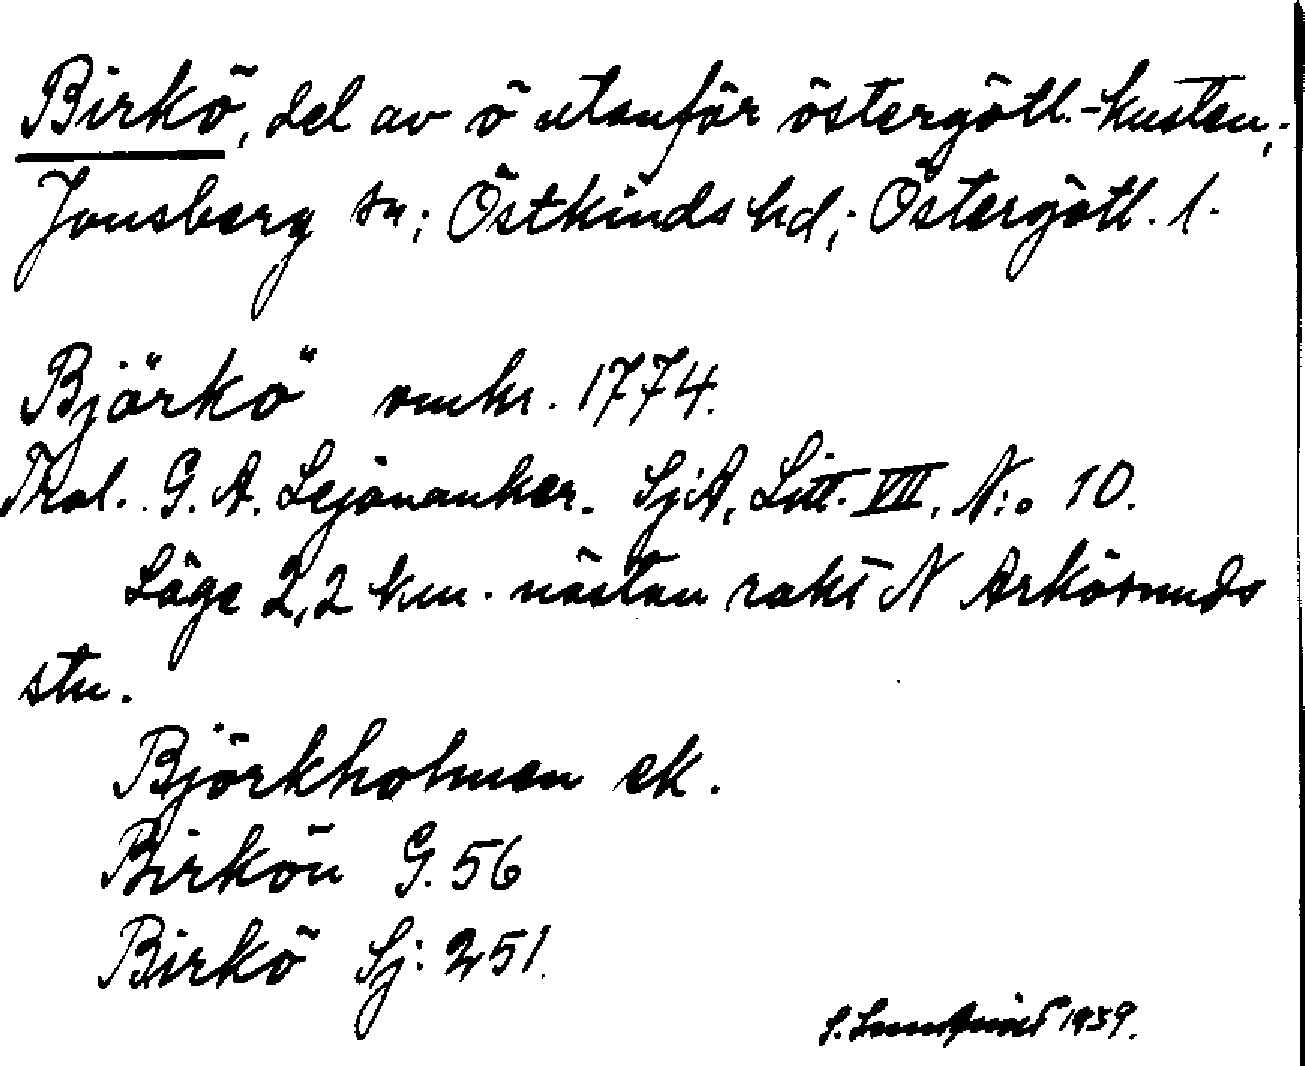 Birkö, del av ö utanför östergötl.-kusten,;
Jonsberg sn; Östkinds hd; Östergötl. l.
Björkö omkr. 1774.
Thol. G. A. Lejonanker. SjA, Litt. VII, N:o 10.
Läge 2,2 km. nästan rakt N Arkösunds
stn.
Björkholmen ek.
Birkön G. 56
Birkö Sj: 251.
S. Lundqvist 1939.